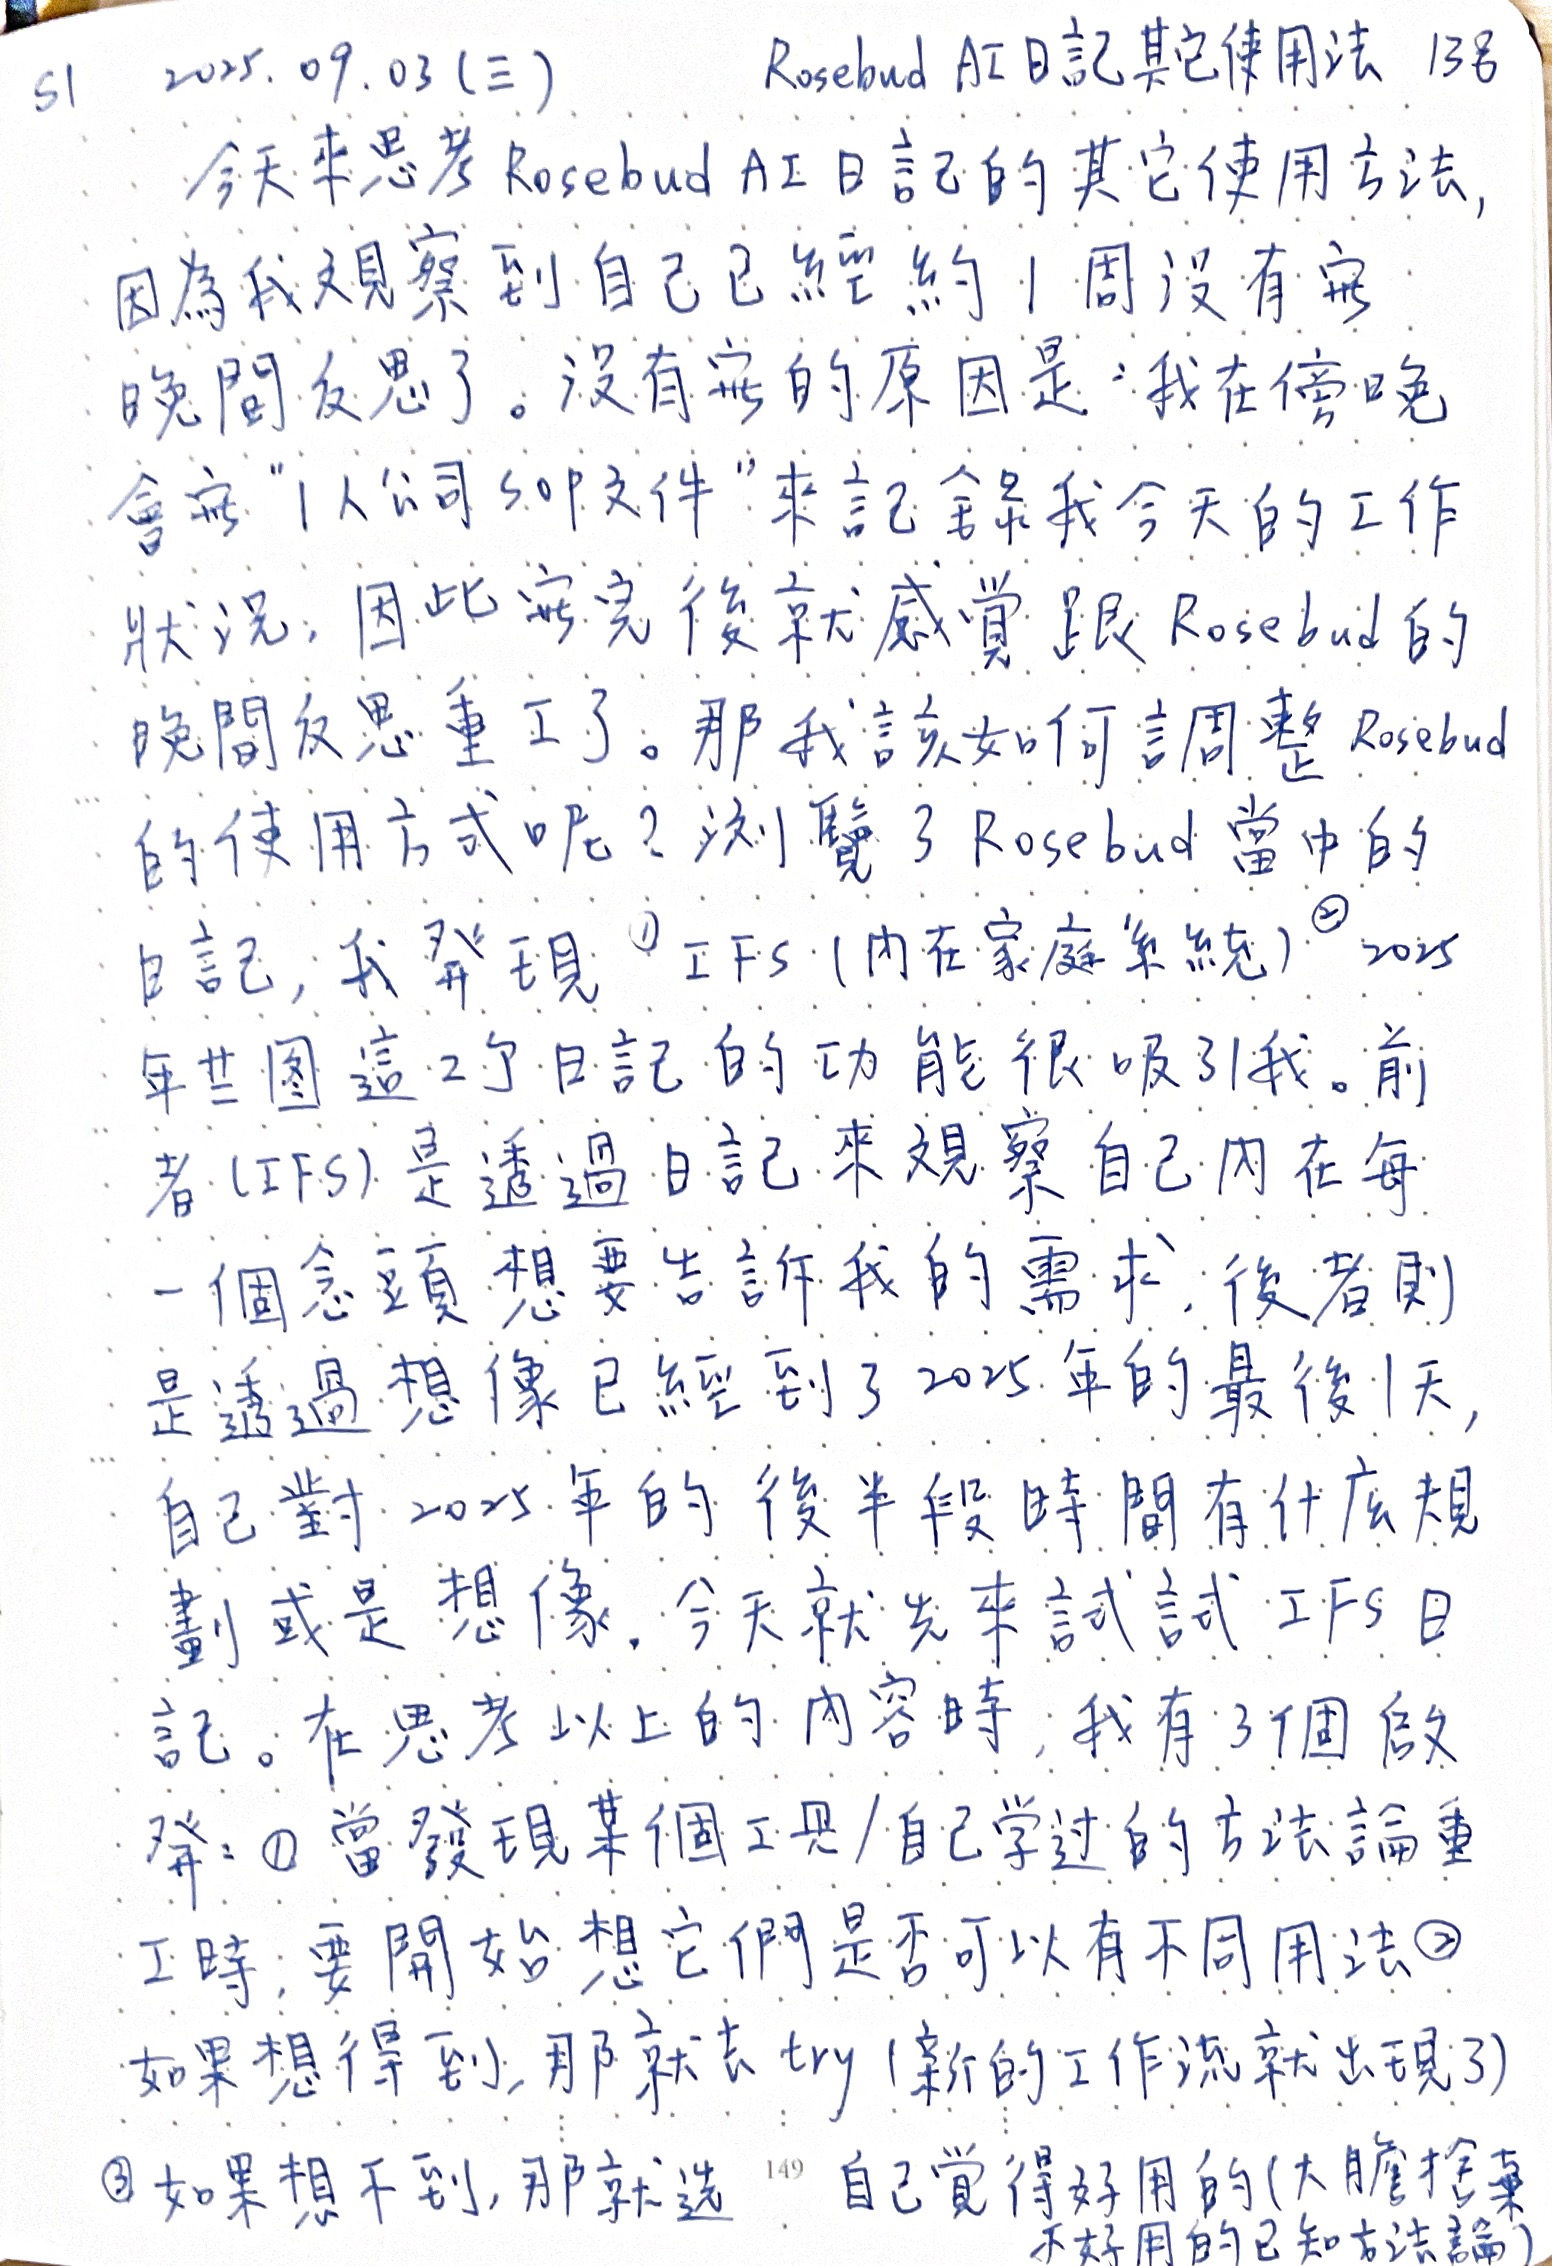 51 2025.09.03(三) Rosebud AI日記其它使用法 138
今天來思考Rosebud AI日記的其它使用方法,
因為我观察到自己已經約1周没有寫
晚間反思了。没有寫的原因是:我在傍晚
會寫"1人公司SOP文件"來記錄我今天的工作
狀况,因此寫完後就感覺跟Rosebud的
晚間反思重工了。那我該如何調整Rosebud
的使用方式呢?浏覽了Rosebud當中的
日記,我發現①IFS(內在家庭系統)②2025
年藍图這2个日記的功能很吸引我。前
者(IFS)是透過日記來观察自己內在每
一個念頭想要告訴我的需求,後者則
是透過想像已經到了2025年的最後1天,
自己對2025年的後半段時間有什麼規
劃或是想像。今天就先來試試IFS日
記。在思考以上的內容時,我有3個啟
發:①當發現某個工具/自己学过的方法論重
工時,要開始想它們是否可以有不同用法②
如果想得到,那就去try(新的工作流就出現了)
③如果想不到,那就选 自己覺得好用的(大膽捨棄
不好用的已知方法論)
149